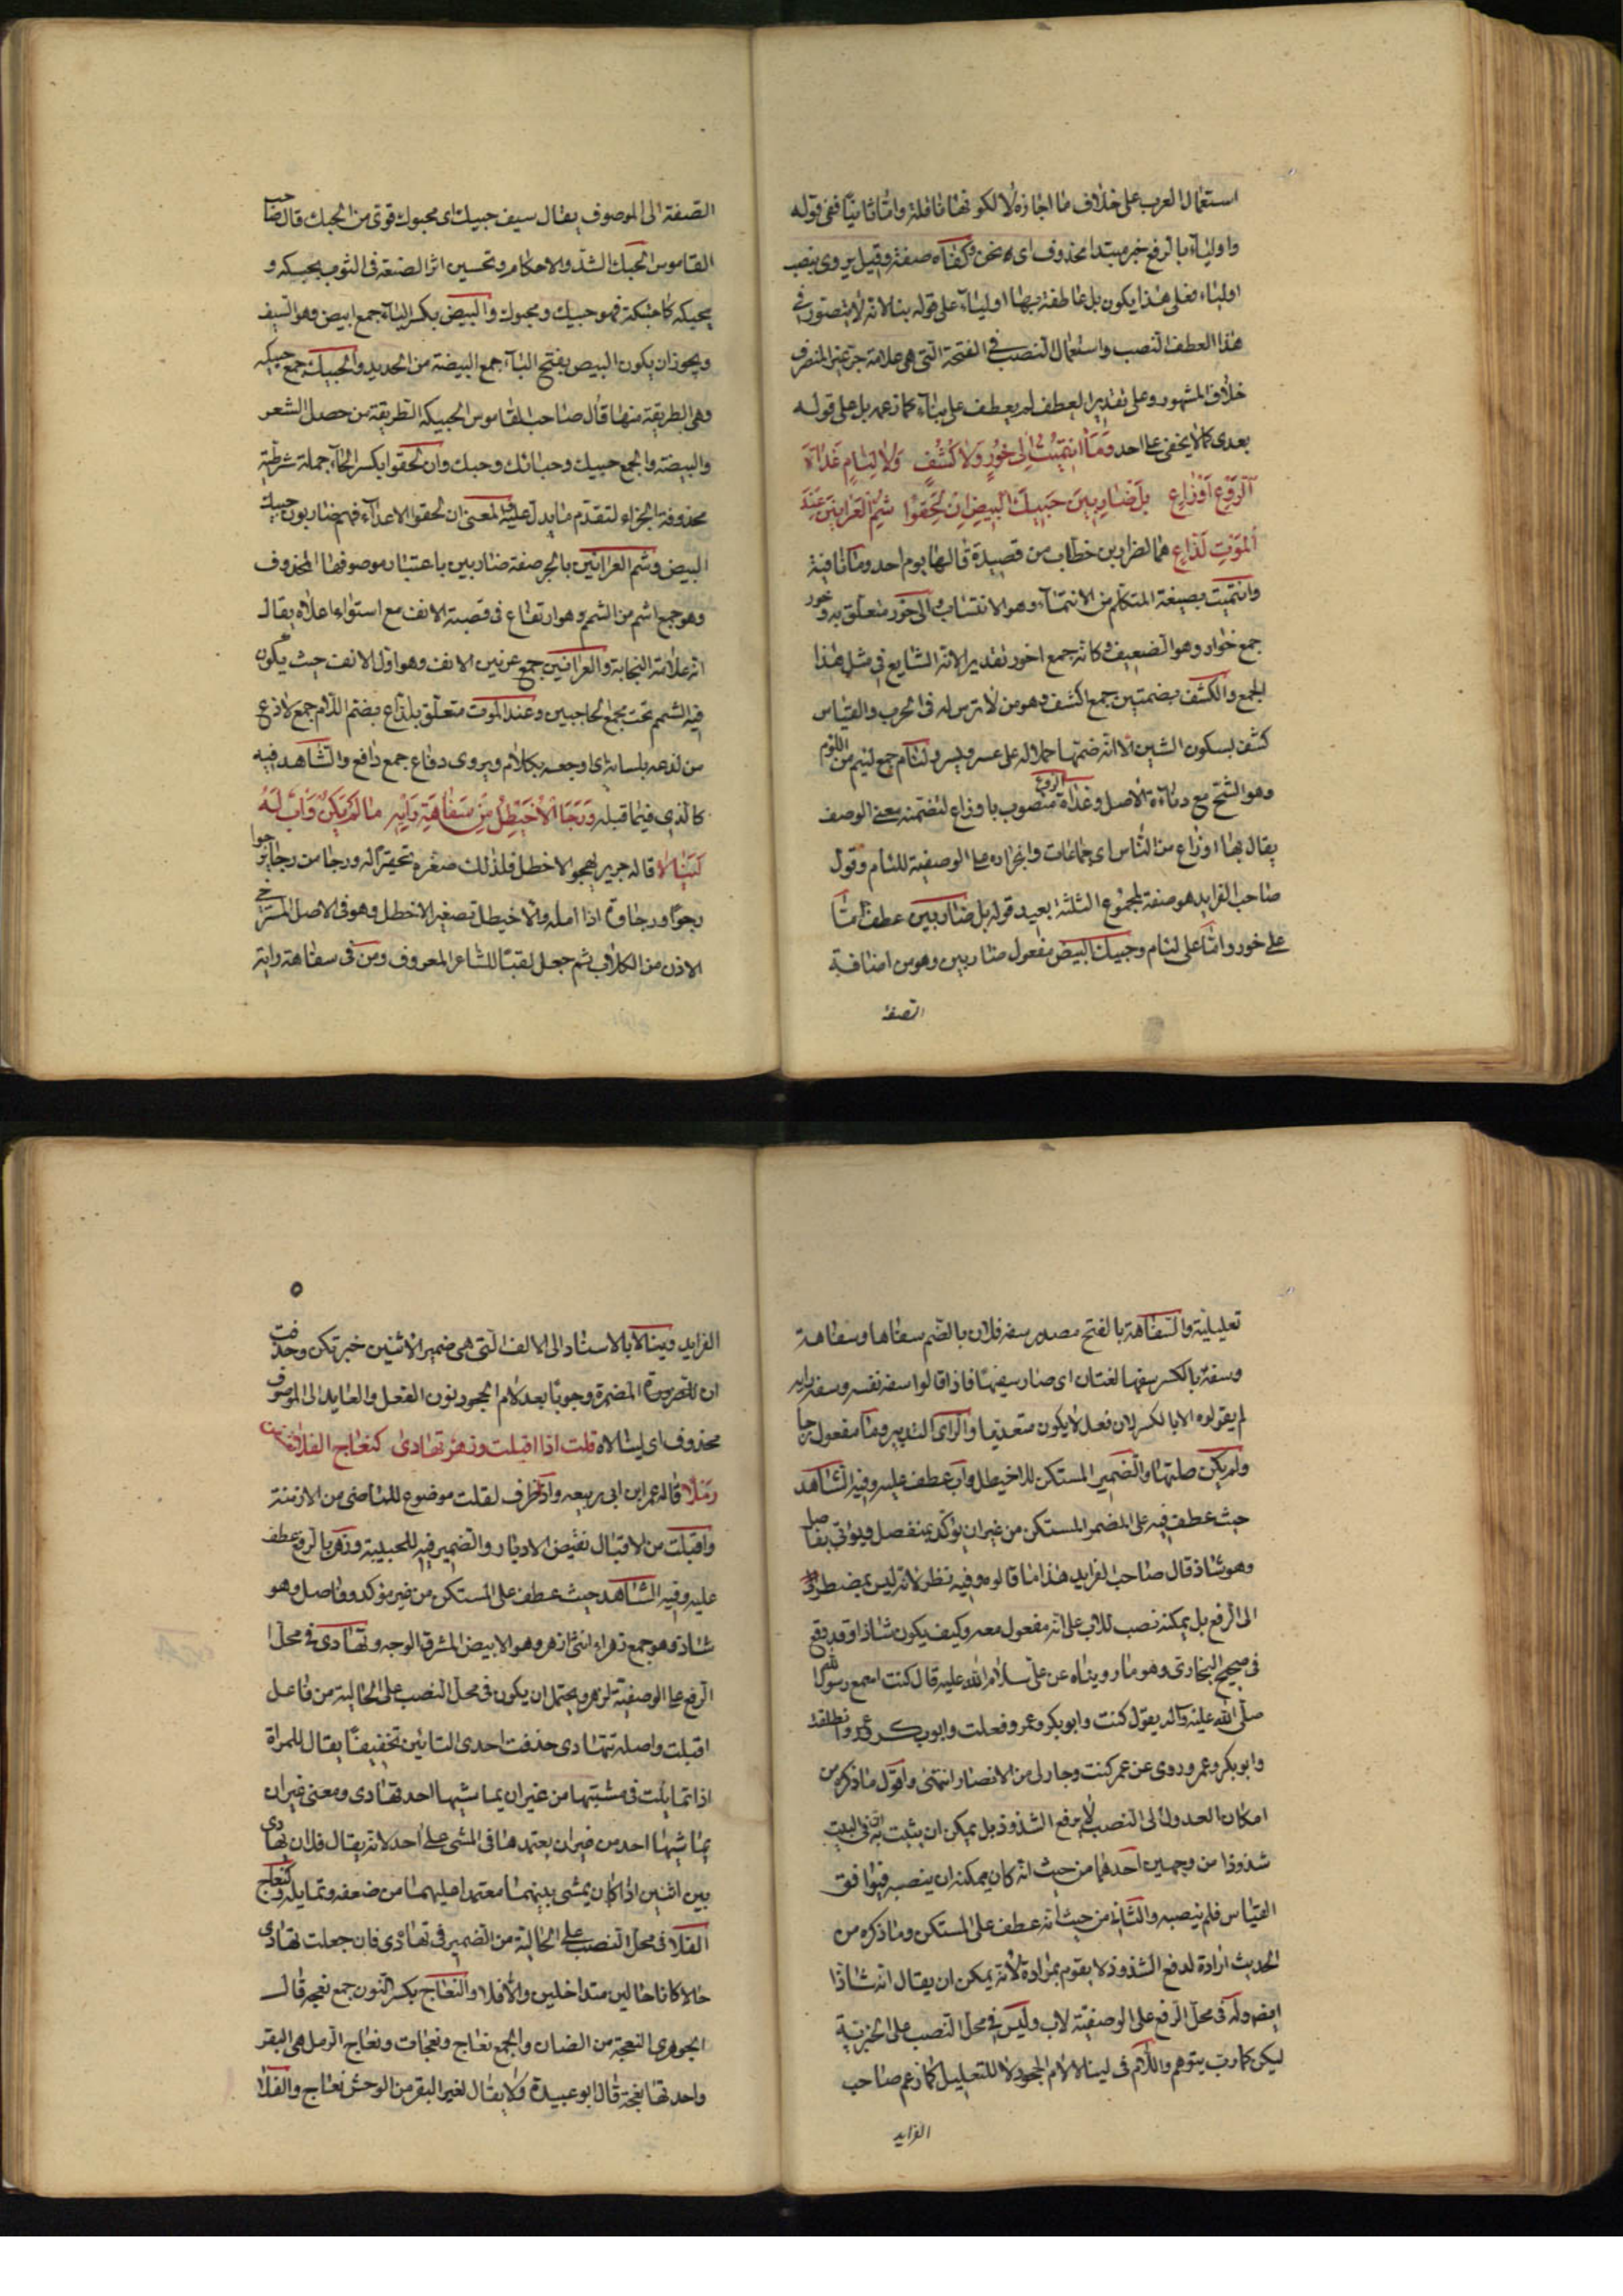 استعمال العرب على خلاف ما اجازه لا لكونها ناقلة واما ثانيا ففى قوله
واولياء بالرفع خبر مبتدا محذوف اى نحن وكفاه صفة وقيل يروى بنصب
اولياء فعلى هذا يكون بل عاطفة بها اولياء على قوله بنا لانه لا يتصور فى
هذا العطف النصب واستعمال النصب فى الفتحة التى هى علامة جر غير المنصرف
خلاف المشهور وعلى تقدير العطف لم يعطف على بناء كما زعمه بل على قوله
بعدى كما لا يخفى على احد وَمَا انتَمَيْتُ اِلى خُورٍ وَلا كُشُفٍ وَلا لِئامٍ غَداةَ
الرَّوْعِ اَوْزاعِ بل ضاربينَ حَبيكَ البيضِ اِنْ لَحِقُوا شُمِّ العَرانينَ عِنْدَ
المَوْتِ لَذّاعِ هما لضرار بن خطاب من قصيدة قالها يوم احد وما نافية
وانتميت بصيغة المتكلم من الانتماء وهو الانتساب والى خور متعلق به وخور
جمع خوار وهو الضعيف وكانه جمع اخور تقديرا لانه الشايع فى مثل هذا
الجمع والكشف بضمتين جمع اكشف وهو من لا ترس له فى الحرب والقياس
كشف بسكون الشين الا انه ضمتها حملا له على عسر ويسر ولئام جمع لئيم من اللؤم
وهو الشح مع دناءة الاصل وغداة الروع منصوب باوزاع لتضمنه معنى الوصف
يقال بها اوزاع من الناس اى جماعات وانجراره على الوصفية للئام وقول
صاحب الفرايد هو صفة لمجموع الثلثة بعيد قوله بل ضاربين عطف اما
على خور واما على لئام وحبيك البيض مفعول ضاربين وهو من اضافة
الصفة
الصفة الى الموصوف يقال سيف حبيك اى محبوك قوى من الحبك قال صاحب
القاموس الحبك الشد والاحكام وتحسين اثر الصنعة فى الثوب يحبكه و
يحبكه كاحتبكه فهو حبيك ومحبوك والبيض بكسر الباء جمع ابيض وهو السيف
ويجوز ان يكون البيض بفتح الباء جمع البيضة من الحديد والحبيك جمع حبيكه
وهى الطريقة منها قال صاحب القاموس الحبيكه الطريقة من خصل الشعر
والبيضة والجمع حبيك وحبائك وحبك وان لحقوا بكسر الحاء جملة شرطية
محذوفة الجزاء لتقدم ما يدل عليه والمعنى ان لحقوا الاعداء فهم ضاربون حبيك
البيض وشم العرانين بالجر صفة ضاربين باعتبار موصوفها المحذوف
وهو جمع اشم من الشمم وهو ارتفاع فى قصبة الانف مع استواء اعلاه يقال
انه علامة النجابة والعرانين جمع عرنين الانف وهو اول الانف حيث يكون
فيه الشمم تحت مجمع الحاجبين وعند الموت متعلق بلذاع بضم اللام جمع لاذع
من لذعه بلسانه اى اوجعه بكلام ويروى دفاع جمع دافع والشاهد فيه
كالذى فيما قبله وَرَجَا الاُخَيْطِلُ مِنْ سَفاهَةِ رَأيِه ما لَمْ يَكُنْ وَاَبٌ لَهُ
لِيَنالا قاله جرير يهجو الاخطل فلذلك صغره تحقيرا له ورجا من رجا يرجوا
رجوا ورجاوة اذا امله والاخيطل تصغير الاخطل وهو فى الاصل المسترخى
الاذن من الكلاب ثم جعل لقبا للشاعر المعروف ومن فى سفاهة رايه
تعليلية والسفاهة بالفتح مصدر سفه فلان بالضم سفاها وسفاهة
وسفه بالكسر سفها لغتان اى صار سفيها فاذا قالوا سفه نفسه وسفه رايه
لم يقولوه الا بالكسر لان فعل لا يكون متعديا والراى التدبير وما مفعول رجا
ولم يكن صلتها والضمير المستكن للاخيطل واب عطف عليه وفيه الشاهد
حيث عطف فيه على المضمر المستكن من غير ان يؤكد بمنفصل ويؤتى بفاصل
وهو شاذ قال صاحب الفرايد هذا ما قالوه وفيه نظر لانه ليس بمضطر
الى الرفع بل يمكنه نصب للاب على انه مفعول معه وكيف يكون شاذا وقد وقع
فى صحيح البخارى وهو ما رويناه عن على سلام الله عليه قال كنت اسمع رسول الله
صلى الله عليه وآله يقول كنت وابو بكر وعمر وفعلت وابو بكر وعمر وانطلقت
وابو بكر وعمر وروى عن عمر كنت وجار لى من الانصار انتهى واقول ما ذكره من
امكان العدول الى النصب لا يرفع الشذوذ بل يمكن ان يثبت به ان فى البيت
شذوذا من وجهين احدهما من حيث انه كان يمكنه ان ينصبه فيوافق
القياس فلم ينصبه والثانى من حيث انه عطف على المستكن وما ذكره من
الحديث ارادة لدفع الشذوذ لا يقوم بمراده لانه يمكن ان يقال انه شاذا
ايضا وله فى محل الرفع على الوصفية لاب وليس فى محل النصب على الخبرية
ليكن كما ربما يتوهم واللام فى لينالا لام الجحود لا للتعليل كما زعم صاحب
الفرايد
٥
الفرايد وينالا بالاسناد الى الالف التى هى ضمير الاثنين خبر تكن وحذفت
ان للضرورة المضمرة وجوبا بعد لام الجحود نون الفعل والعايد الى الموصوف
محذوف اى لينالاه قلت اذا اقبلت وزهر تهادى كنعاج الفلا تعسفن
رملا قاله عمر ابن ابى ربيعه واذ ظرف لقلت موضوع للماضى من الازمنة
واقبلت من الاقبال نقيض الادبار والضمير فيه للحبيبة وزهر بالرفع عطف
عليه وفيه الشاهد حيث عطف على المستكن من غير مؤكد وفاصل وهو
شاذ وهو جمع زهراء انثى ازهر وهو الابيض المشرق الوجه وتهادى فى محل
الرفع على الوصفية لزهر ويحتمل ان يكون فى محل النصب على الحالية من فاعل
اقبلت واصله تتهادى حذفت احدى التائين تخفيفا يقال للمراة
اذا تمايلت فى مشيتها من غير ان يماشيها احد تهادى ومعنى غير ان
يماشيها احد من غير ان يعتمدها فى المشى على احد لانه يقال فلان تهادى
بين اثنين اذا كان يمشى بينهما معتمدا عليهما من ضعفه وتمايله وكنعاج
الفلا فى محل النصب على الحالية من الضمير فى تهادى فان جعلت تهادى
حالا كانا حالين متداخلين والا فلا والنعاج بكسر النون جمع نعجه قال
الجوهرى النعجة من الضان والجمع نعاج ونعجات ونعاج الرمل هى البقر
واحدتها نعجة قال ابو عبيدة ولا يقال لغير البقر من الوحش نعاج والفلا